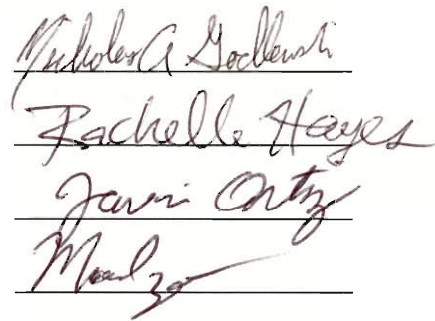 Nicholas A Godlewski
Rachelle Hayes
Javier Ortiz